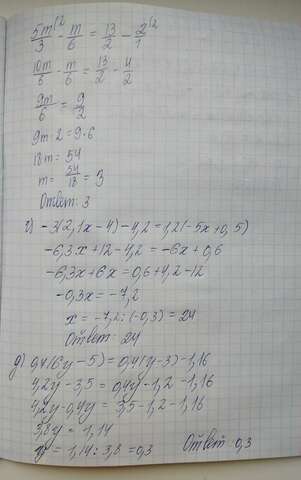 5m/3 |2 - m/6 = 13/2 - 2/1 |2
10m/6 - m/6 = 13/2 - 4/2
9m/6 = 9/2
9m · 2 = 9 · 6
18m = 54
m = 54/18 = 3
Ответ: 3
г) -3(2,1x-4)-4,2=1,2(-5x+0,5)
-6,3x+12-4,2=-6x+0,6
-6,3x+6x=0,6+4,2-12
-0,3x=-7,2
x=-7,2:(-0,3)=24
Ответ: 24
д) 0,7(6y-5)=0,4(y-3)-1,16
4,2y-3,5=0,4y-1,2-1,16
4,2y-0,4y=3,5-1,2-1,16
3,8y=1,14
y=1,14:3,8=0,3 Ответ 0,3